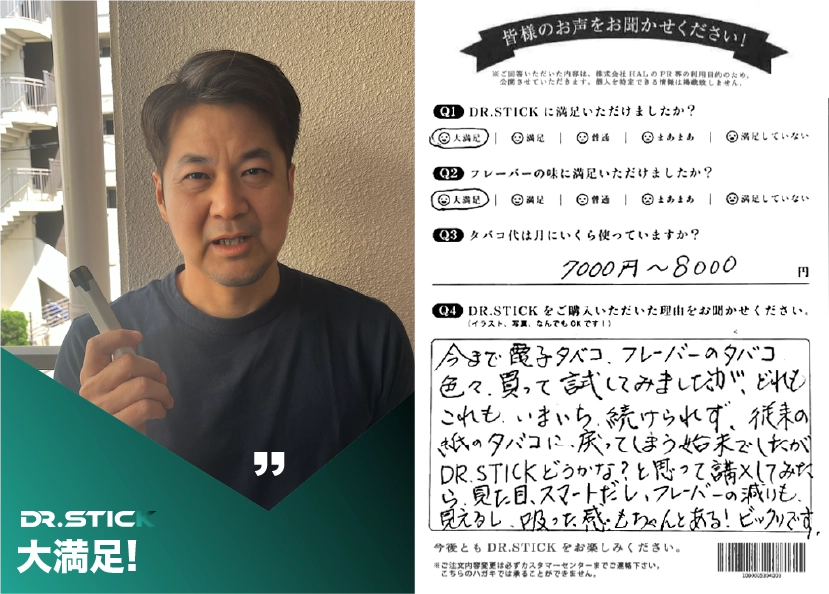 ”
DR.STICK
大満足!
皆様のお声をお聞かせください!
※ご回答いただいた内容は、株式会社HALのPR等の利用目的のため、
公開させていただきます。個人を特定できる情報は掲載致しません。
Q1 DR.STICKに満足いただけましたか?
大満足 | 満足 | 普通 | まあまあ | 満足していない
Q2 フレーバーの味に満足いただけましたか?
大満足 | 満足 | 普通 | まあまあ | 満足していない
Q3 タバコ代は月にいくら使っていますか?
7000円〜8000 円
Q4 DR.STICKをご購入いただいた理由をお聞かせください。
(イラスト、写真、なんでもOKです!)
今まで電子タバコ、フレーバーのタバコ
色々、買って試してみましたが、どれも
これも、いまいち、続けられず、従来の
紙のタバコに、戻ってしまう始末でしたが
DR.STICKどうかな?と思って購入してみた
ら、見た目、スマートだし、フレーバーの減りも、
見えるし、吸った感もちゃんとある!ビックリです。
今後ともDR.STICKをお楽しみください。
※ご注文内容変更は必ずカスタマーセンターまでご連絡下さい。
こちらのハガキでは承ることができません。